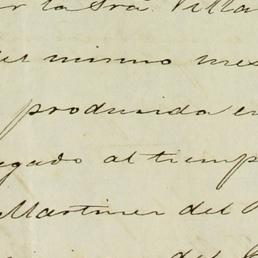 la Sra. Villa
mismo mes
producida en
egado al tiemp
Martinez del
del